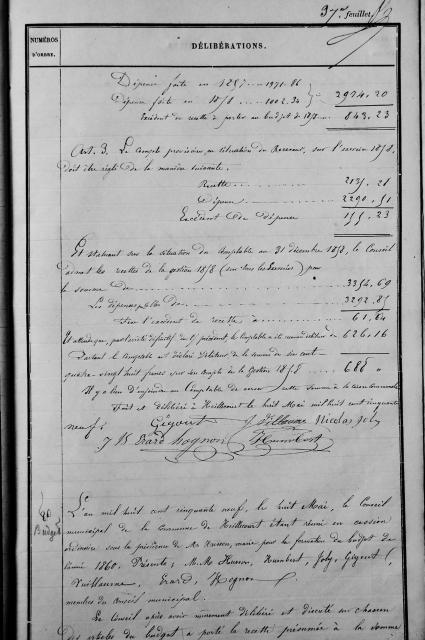 37me feuillet
NUMÉROS
D'ORDRE.
DÉLIBÉRATIONS.
Dépense faite en 1857 .... 1971.86
Dépense faite en 1858 .... 1002.34 } 2974.20
Excédent de recette à porter au budget de 1858 .... 843.23
Art. 3. Le Compte provisoire en situation du Receveur, sur l'exercice 1858,
doit être réglé de la manière suivante.
Recette .... 2135.28
Dépense .... 2290.51
Excédent de dépense 155.23
Et statuant sur la situation du Comptable au 31 décembre 1858, le Conseil
admet les recettes de la gestion 1858 (sur tous les Exercices) pour
la somme de .... 3354.69
Les dépenses, celle de .... 3292.85
Fixe l'excédent de recette à .... 61.84
Et attendu que, par arrêté définitif du précédent, le Comptable a été 626.16
Partant le Comptable est déclaré débiteur de la somme de six cent
quatre-vingt huit francs sur son Compte de la Gestion 1858 .... 688 "
Il y a lieu d'enjoindre au Comptable de verser cette somme à la caisse Communale
Fait et délibéré à Heillecourt le huit Mai mil huit cent cinquante
neuf.
Gigout J Villaume Nicolas Joly
J B Erard Hognon Humbert
20
Budget
L'an mil huit cent cinquante neuf, le huit Mai, le Conseil
municipal de la Commune de Heillecourt étant réuni en cession
ordinaire sous la présidence de Mr Husson, maire pour la formation du budget de
l'année 1860. Présents; M.M. Husson, Humbert, Joly, Gigout,
Vuillaume, Erard, Hognon
membres du Conseil municipal.
Le Conseil après avoir mûrement délibéré et discuté sur chacun
des articles du budget a porté la recette présumée à la somme